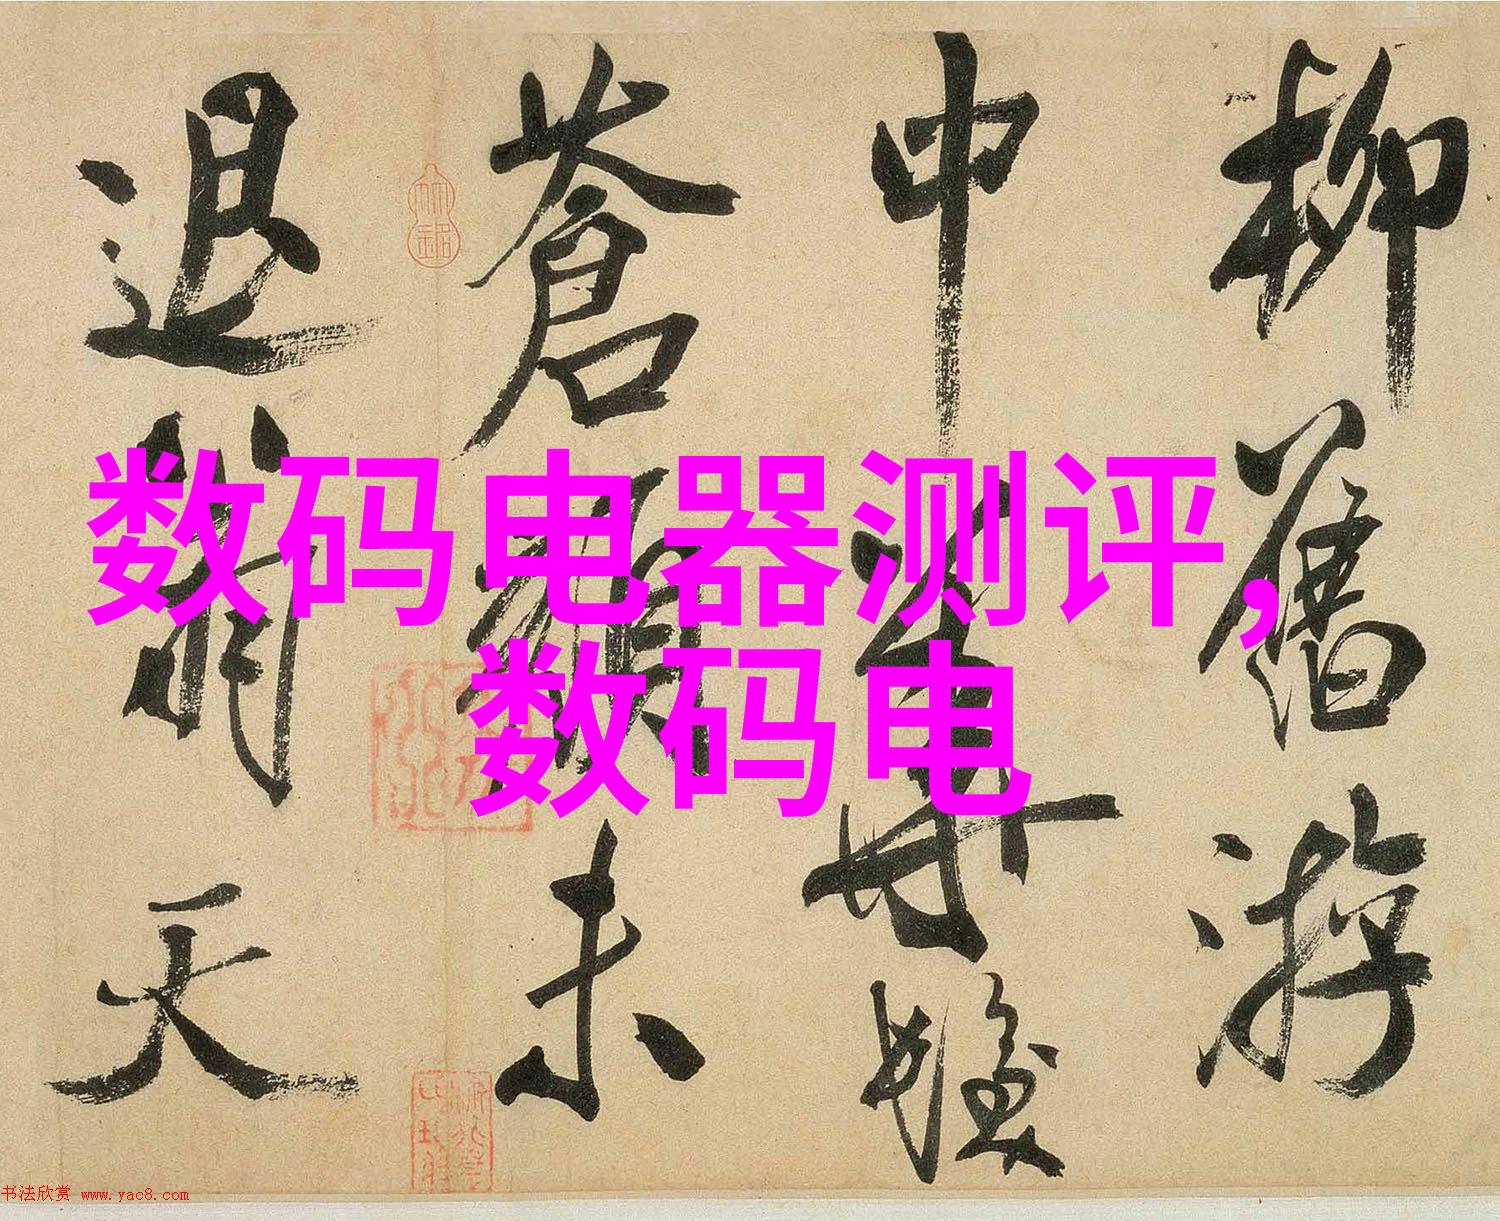 柳舊游
中華髮
蒼顏未
退翁天
数码电器测评,
数码电
书法欣赏 www.yac8.com